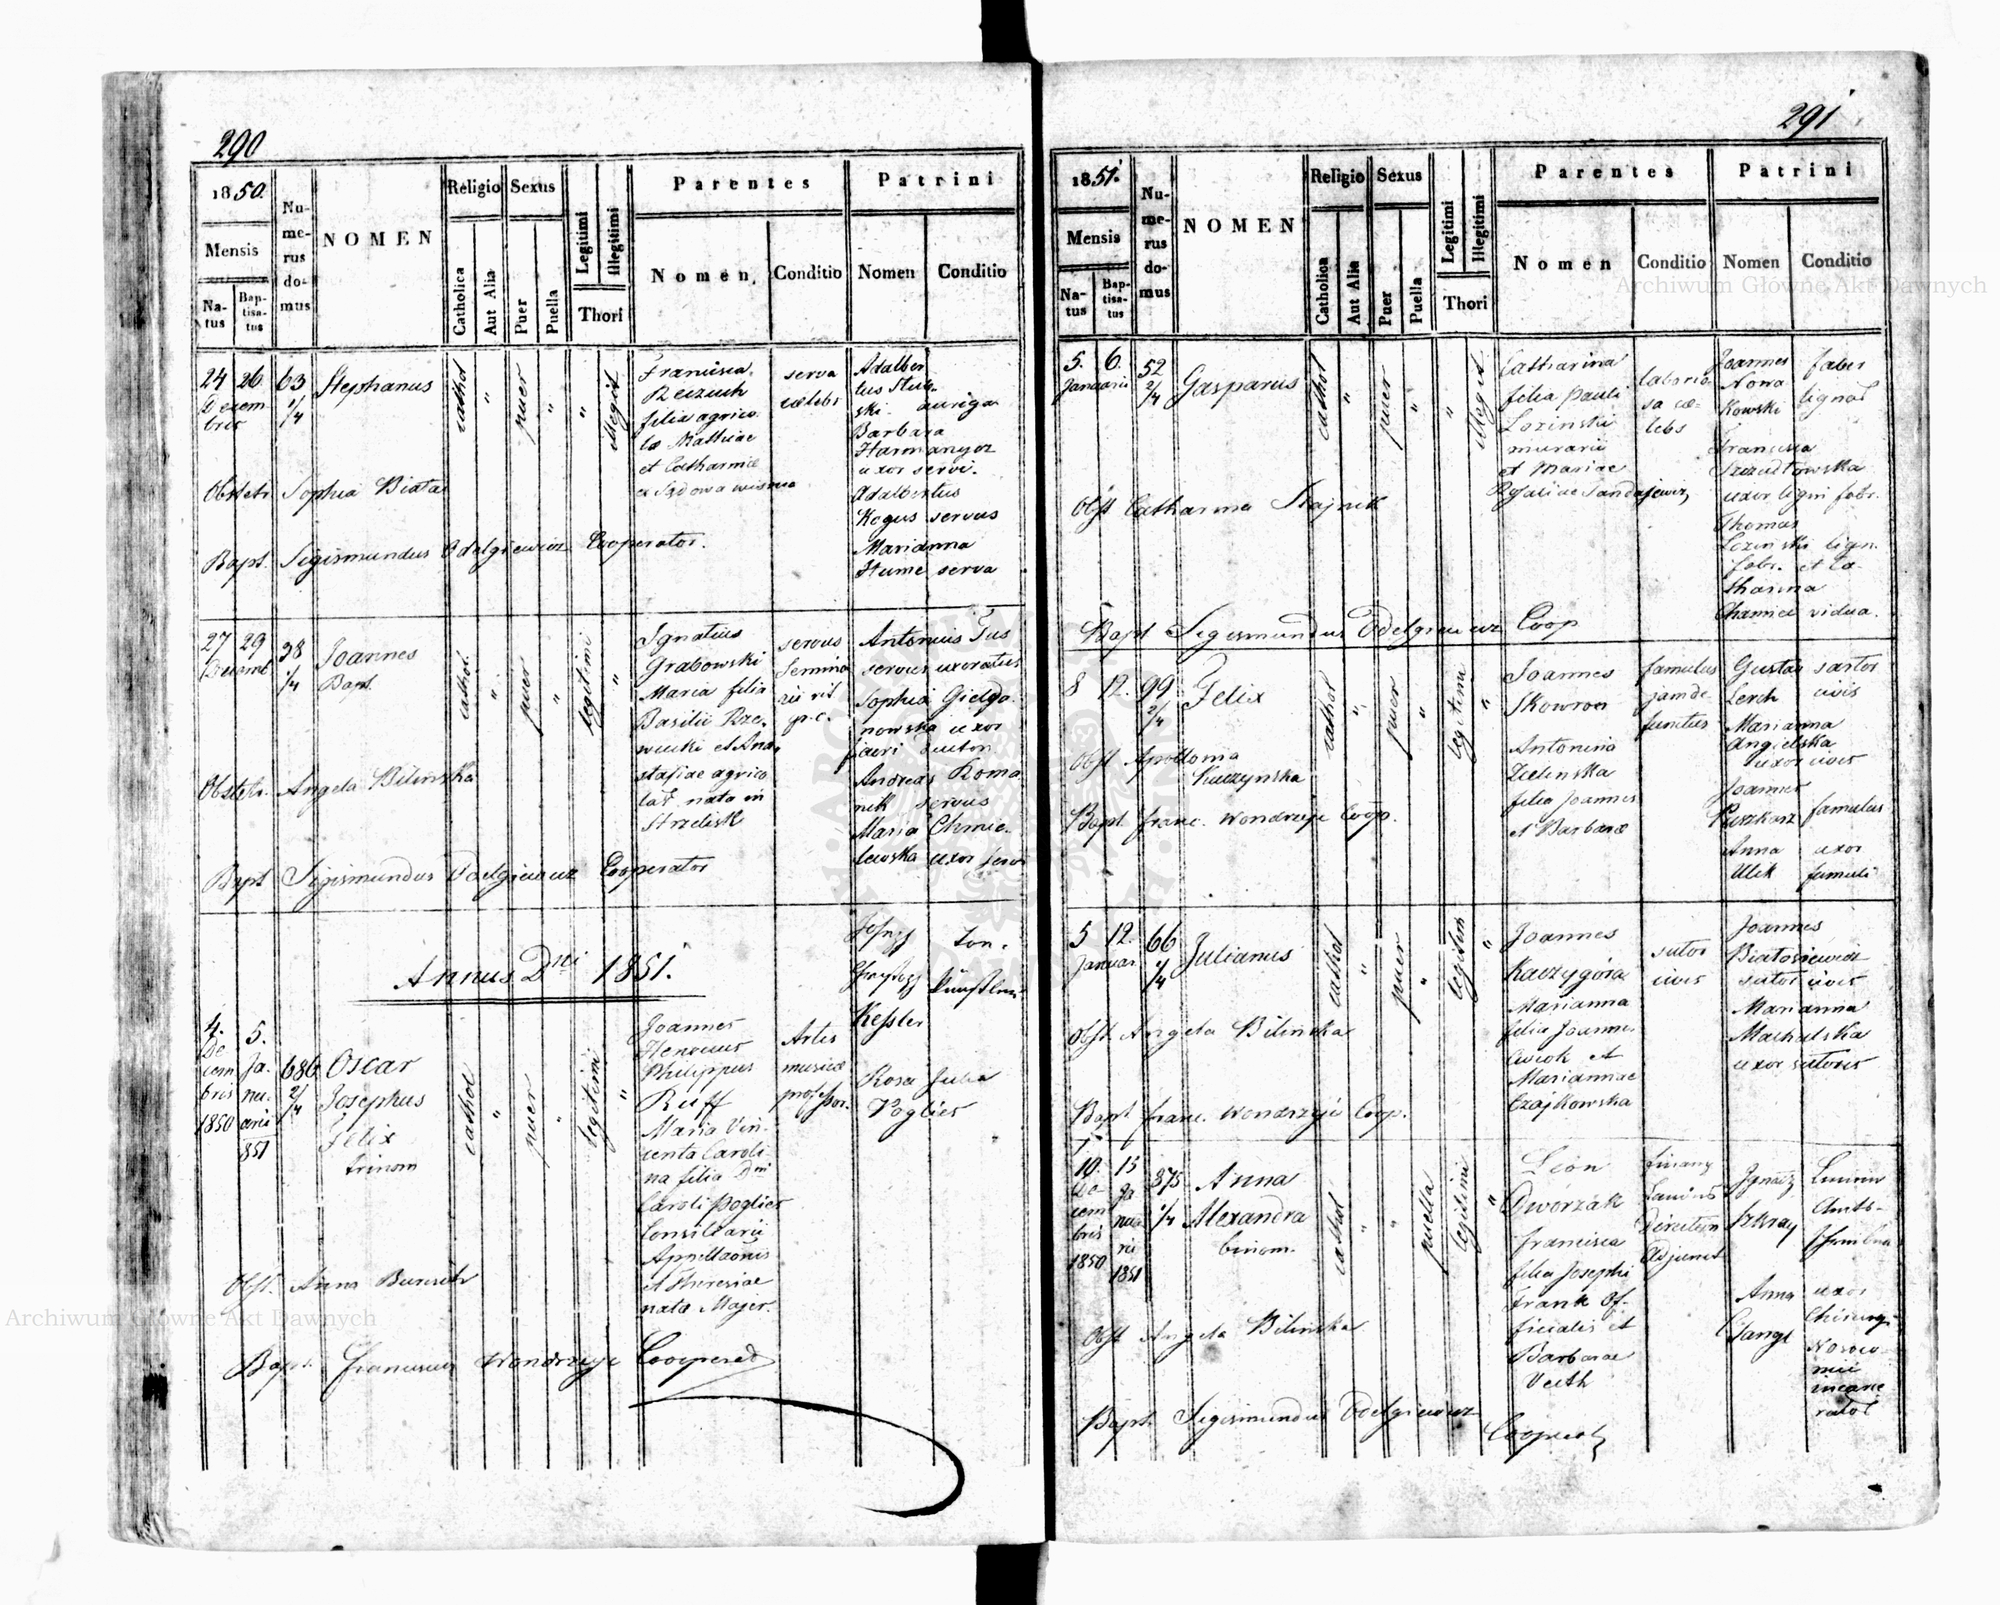 290
1850.
Mensis
Natus
Baptisatus
Numerus domus
NOMEN
Religio
Catholica
Aut Alia
Sexus
Puer
Puella
Legitimi
Illegitimi
Thori
Parentes
Nomen
Conditio
Patrini
Nomen
Conditio
24 26 63 Stephanus cathol " puer " " illegit
Decem
bris
1/4
Francisca
filia agrico
lae Mathiae
et Catharinae
serva
caelebs
Adalber
tus
ski. auriga
Barbara
uxor servi.
Adalbertus
Kogus servus
Marianna
Hume serva
Obstetr. Sophia Biała
Bapt. Sigismundus Odelgiewicz Cooperator.
27 29 38 Joannes cathol. " puer " legitimi "
Decemb 1/4 Bapt.
Ignatius
Grabowski
Maria filia
Basilii
stasiae agrico
lar. nata in
Strzelisk
servus
Semina
rii rit
gr. c.
Antonius Tus
servus uxoratus
Sophia
nowska uxor
Andreas Roma
nik servus
Maria Chmie
lewska uxor servi
Obstetr. Angela Bilinska
Bapt Sigismundus Odelgiewicz Cooperator
Annus Dni 1851.
4. 5.
De
cem
bris
1850
Ja
nu
arii
851
686
2/4
Oscar
Josephus
Felix
trinom
cathol " puer " legitimi "
Joannes
Henricus
Philippus
Ruff
Maria Vin
centa Caroli
na filia Dni
Caroli Poglies
Consiliarii
Appellaonis
et Theresiae
nata Majer.
Artis
musicae
professor.
Joseph
Christoph
Kessler
Ton-
künstler
Rosa Julia
Poglies
Obst. Anna
Bapt. Franciscus Wondrzeje Cooperat
291
1851.
Mensis
Natus
Baptisatus
Numerus domus
NOMEN
Religio
Catholica
Aut Alia
Sexus
Puer
Puella
Legitimi
Illegitimi
Thori
Parentes
Nomen
Conditio
Patrini
Nomen
Conditio
5. 6. 52 Gasparus cathol " puer " " illegit
Januarii 2/4
Catharina
filia Pauli
Lozinski
murarii
et Mariae
laborio
sa cae
lebs
Joannes faber
Nowa
kowski lignar
Francisca
uxor lign fabr.
Thomas
Lozinski lign.
fabr. et Ca
tharina
vidua.
Obst Catharina Stajnik
Bapt Sigismundus Odelgiewicz Coop
8 12. 99 Felix cathol " puer " legitimi "
2/4
Joannes
Skowron
Antonina
Zielinska
filia Joannis
et Barbarae
famulus
jam de
functus
Gustav sartor
Lerch civis
Marianna
Angielska
uxor civis
Joannes
famulus
Anna uxor
Ulik famuli
Obst Apollonia
Kuczynska
Bapt franc. Wondrzeje Coop.
5 12. 66 Julianus cathol " puer " legitim "
Januar 4/4
Joannes
Kaczygóra
Marianna
filia Joannis
et
Mariannae
Czajkowska
sutor
civis
Joannes
Białosiewicz
sutor civis
Marianna
Machalska
uxor sutoris
Obst. Angela Bilinska
Bapt franc. Wondrzeje Coop.
10. 13 375 Anna
De
cem
bris
1850
Ja
nua
rii
1851
1/4 Alexandra
binom.
cathol " " puella legitimi "
Leon
Dworzák
francisca
filia Josephi
Frank of-
ficialis et
Barbarae
Veith
Finanz
Landes
Direction
Adjunct
Ignatz
Anna uxor
Chirurgi
Nosoco
mii
incarce
rator
Obst Angela Bilinska
Bapt. Sigismundus Odelgiewicz
Cooperat
Archiwum Główne Akt Dawnych
Archiwum Główne Akt Dawnych